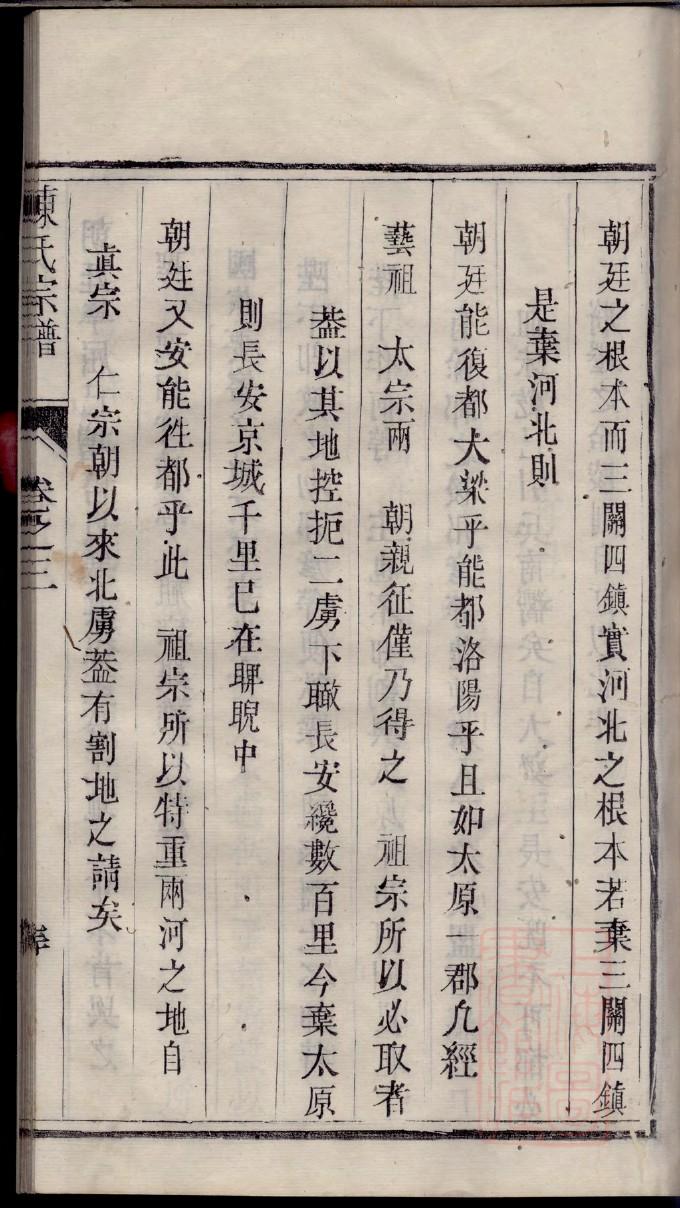 朝廷之根本而三關四鎮實河北之根本若棄三關四鎮
是棄河北則
朝廷能復都大梁乎能都洛陽乎且如太原一郡凢經
藝祖 太宗兩 朝親征僅乃得之 祖宗所以必取者
葢以其地控扼二虜下瞰長安纔數百里今棄太原
則長安京城千里已在睥睨中
朝廷又安能徃都乎此 祖宗所以特重兩河之地自
真宗 仁宗朝以來北虜葢有割地之請矣
陳氏宗譜
卷之三